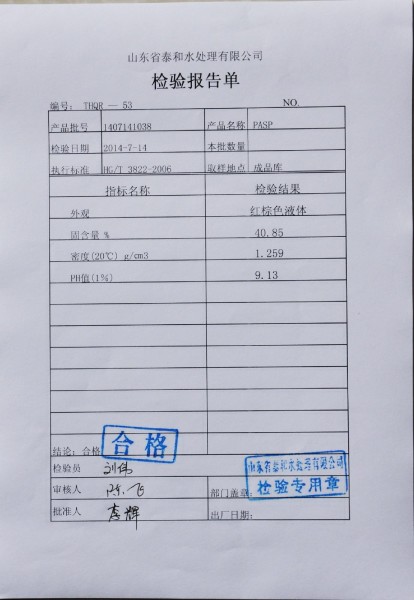 山东省泰和水处理有限公司
检验报告单
编号: THQR — 53 NO.
产品批号 1407141038 产品名称 PASP
检验日期 2014-7-14 本批数量
执行标准 HG/T 3822-2006 取样地点 成品库
指标名称 检验结果
外观 红棕色液体
固含量 % 40.85
密度(20℃) g/cm3 1.259
PH值(1%) 9.13
结论: 合格 合格
检验员 刘伟 山东省泰和水处理有限公司
审核人 陈飞 部门盖章: 检验专用章
批准人 李辉 出厂日期: